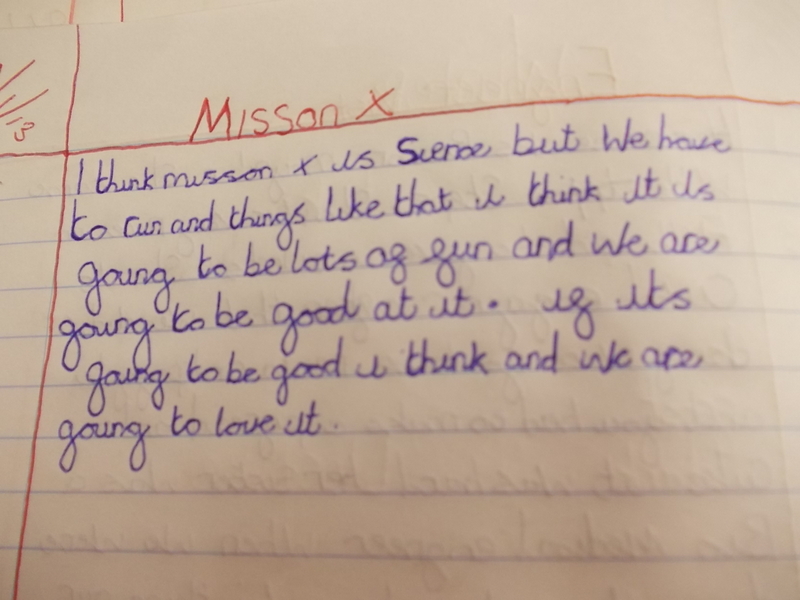 Misson X
I think misson x is Sience but We have
to run and things like that i think it is
going to be lots of fun and We are
going to be good at it. if its
going to be good i think and We are
going to love it.